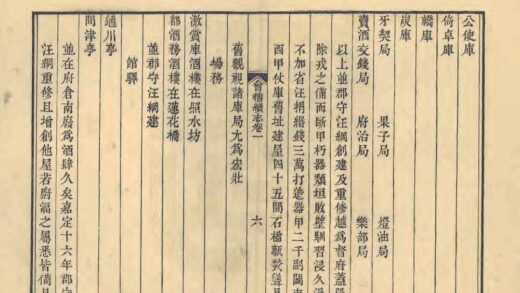 公使庫
倚卓庫
轎庫
炭庫
牙契局 果子局 燈油局
賣酒交錢局 府治局 樂部局
以上並郡守汪綱創建及重修越爲督府蓋
除戎之備而斷甲朽器頹垣敗壁馴習浸久
不加省汪捐緡錢三萬打造器甲二千副闢
西甲仗庫舊址建屋四十五間石檣瓴甓聳
舊觀視諸庫局尤爲宏壯
會稽續志卷一 六
場務
激賞庫酒樓在照水坊
都酒務酒樓在蓮花橋
並郡守汪綱建
館驛
通川亭
問津亭
並在府倉南廢爲酒肆久矣嘉定十六年郡
汪綱重修且增創他屋若庖湢之屬悉皆備具